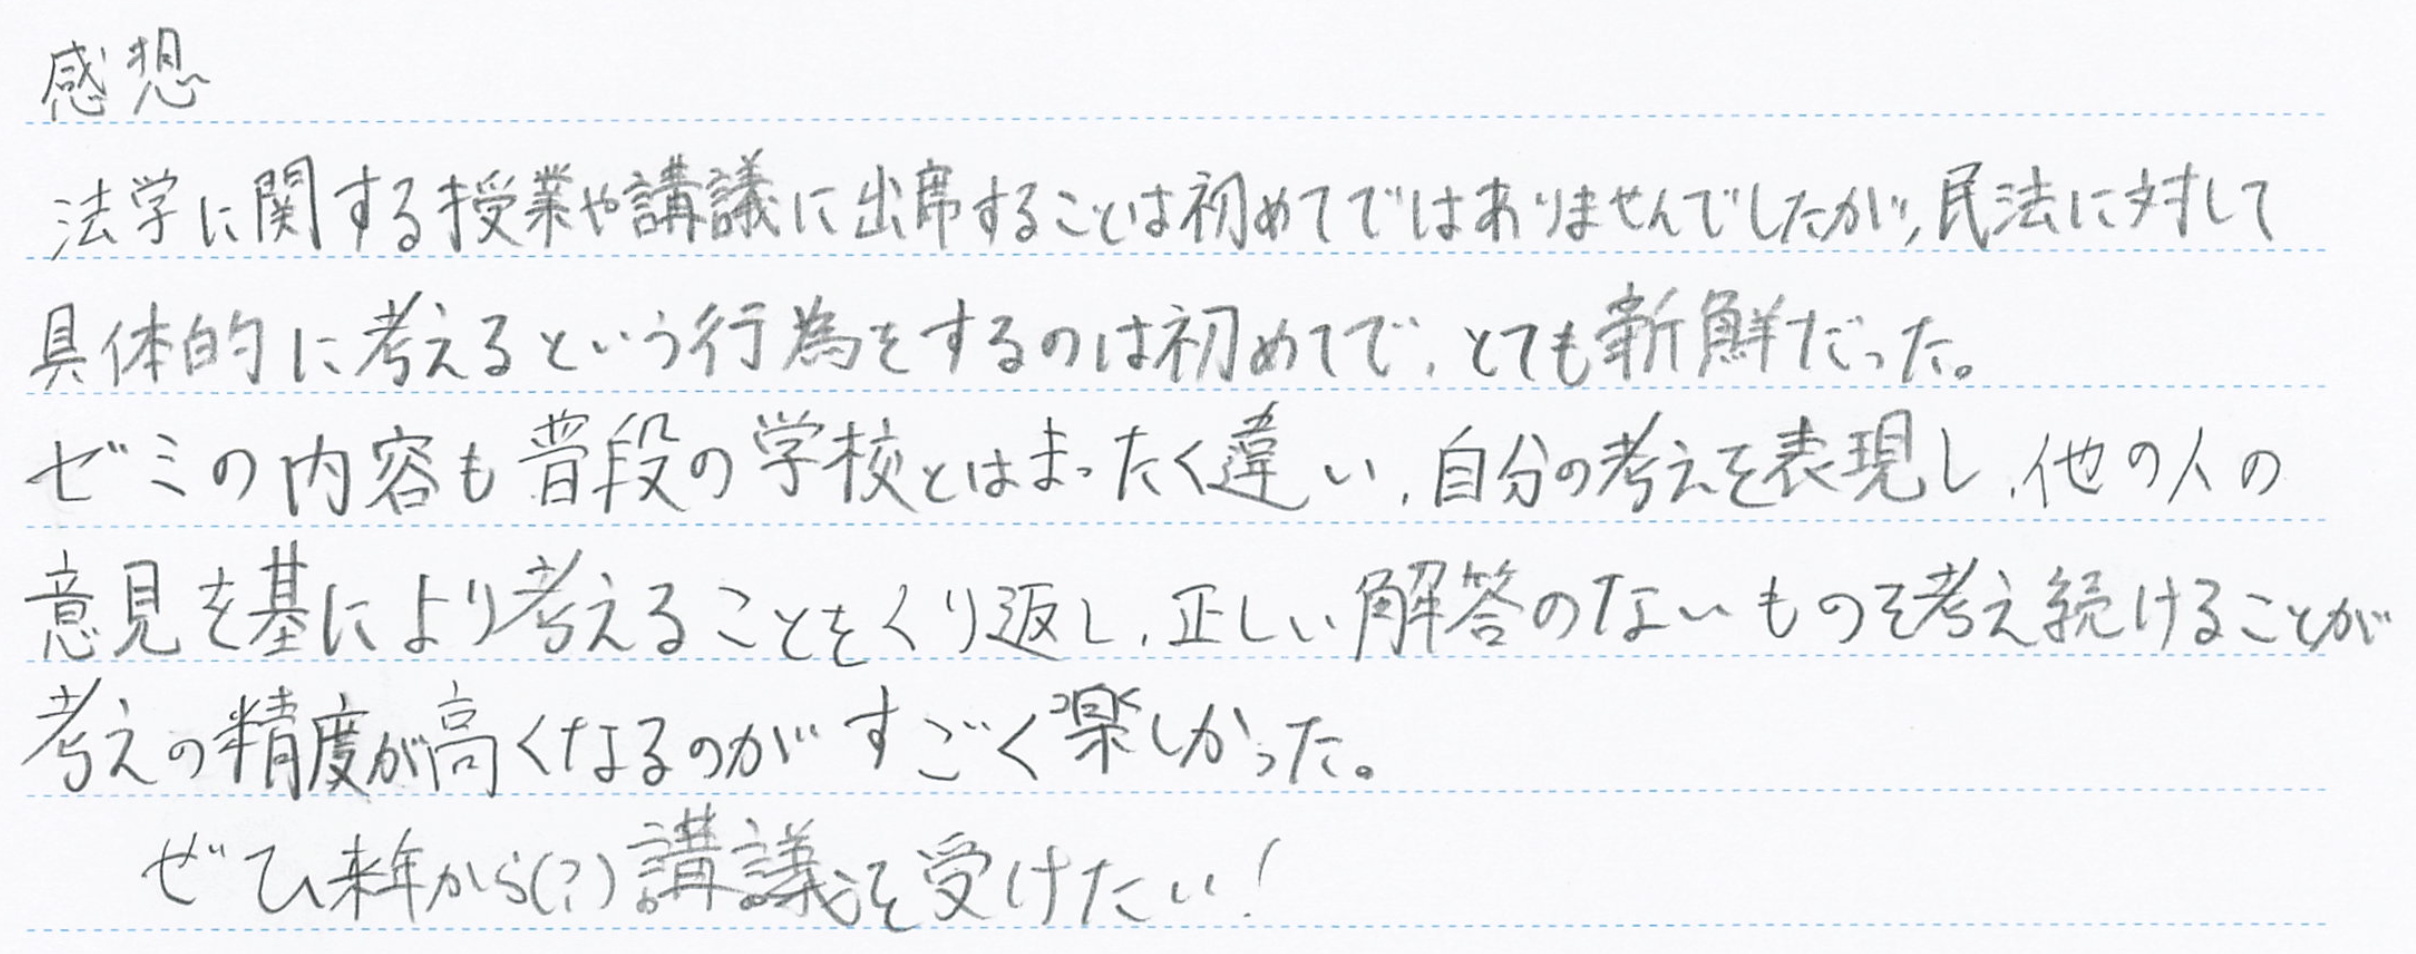 感想
法学に関する授業や講議に出席することは初めてではありませんでしたが、民法に対して
具体的に考えるという行為をするのは初めてで、とても新鮮だった。
ゼミの内容も普段の学校とはまったく違い、自分の考えを表現し、他の人の
意見を基により考えることをくり返し、正しい解答のないものを考え続けることが
考えの精度が高くなるのがすごく楽しかった。
ぜひ来年から(?)講議を受けたい!